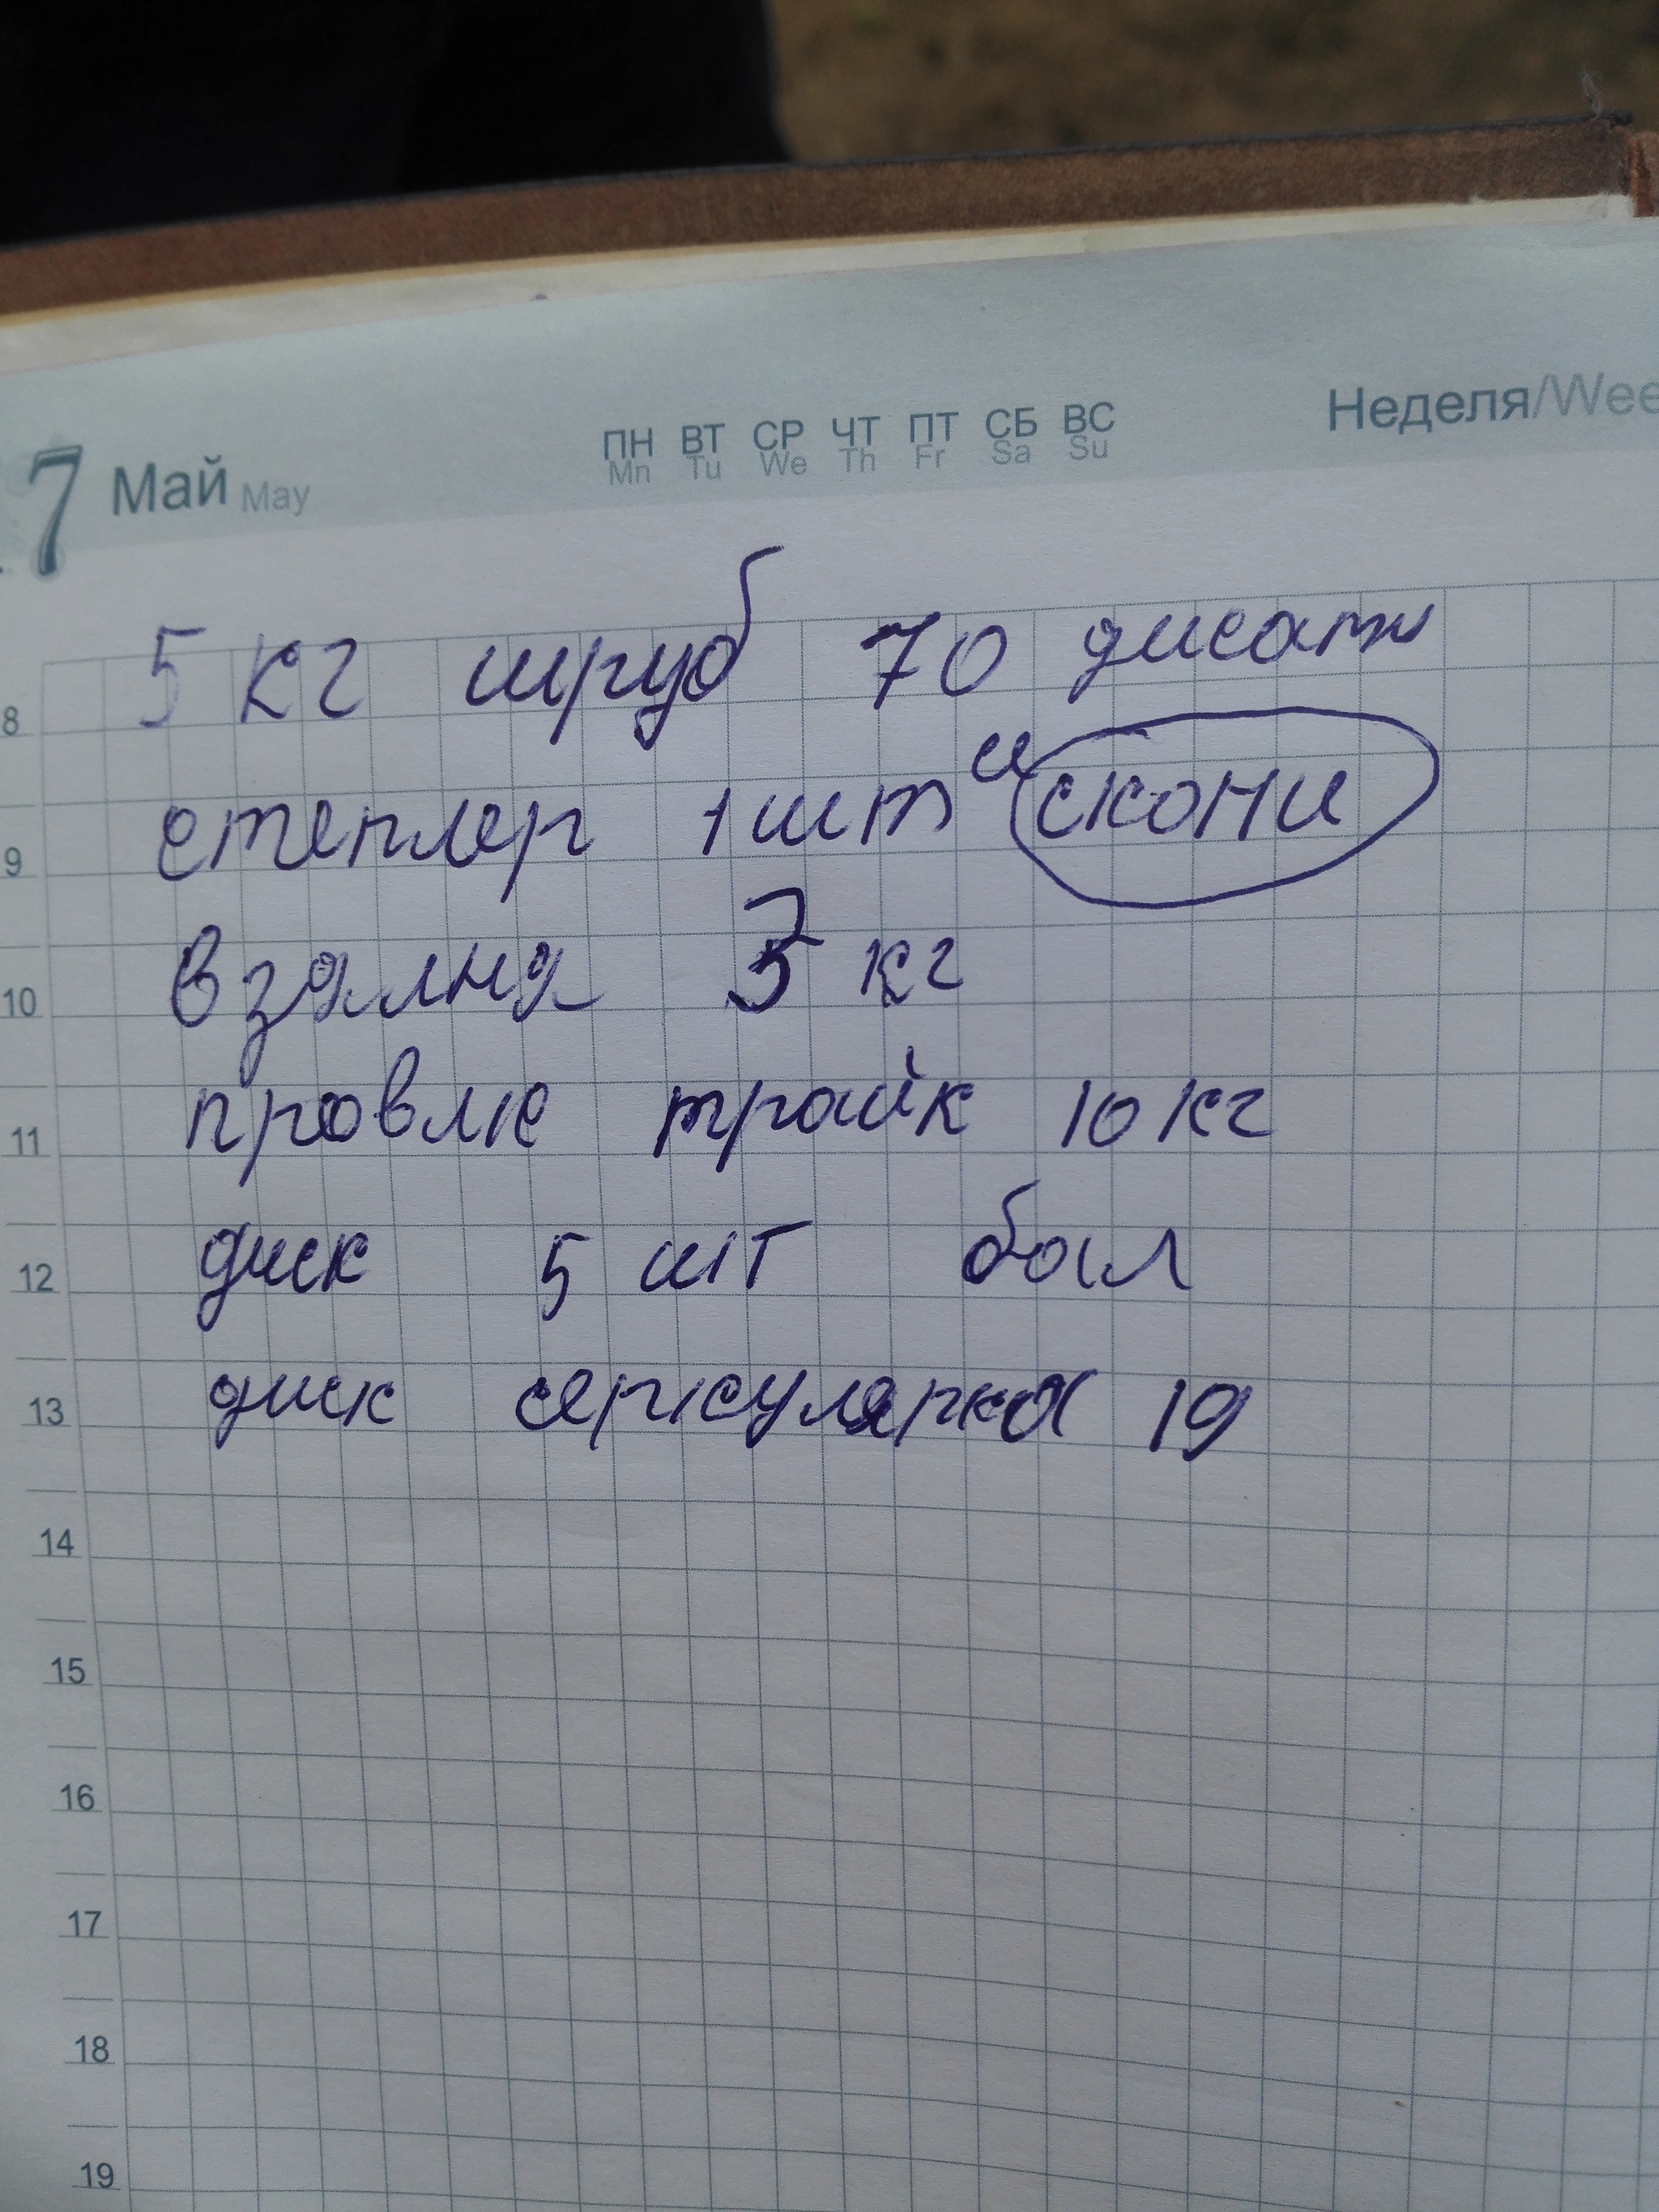 7 Май May ПН ВТ СР ЧТ ПТ СБ ВС Неделя/Wee
Mn Tu We Th Fr Sa Su
5 кг шруб 70 дисати
8
степлер 1 шт и скони
9
взялня 3 кг
10
провле трайк 10 кг
11
диск 5 шт бол
12
диск серкулярка 19
13
14
15
16
17
18
19